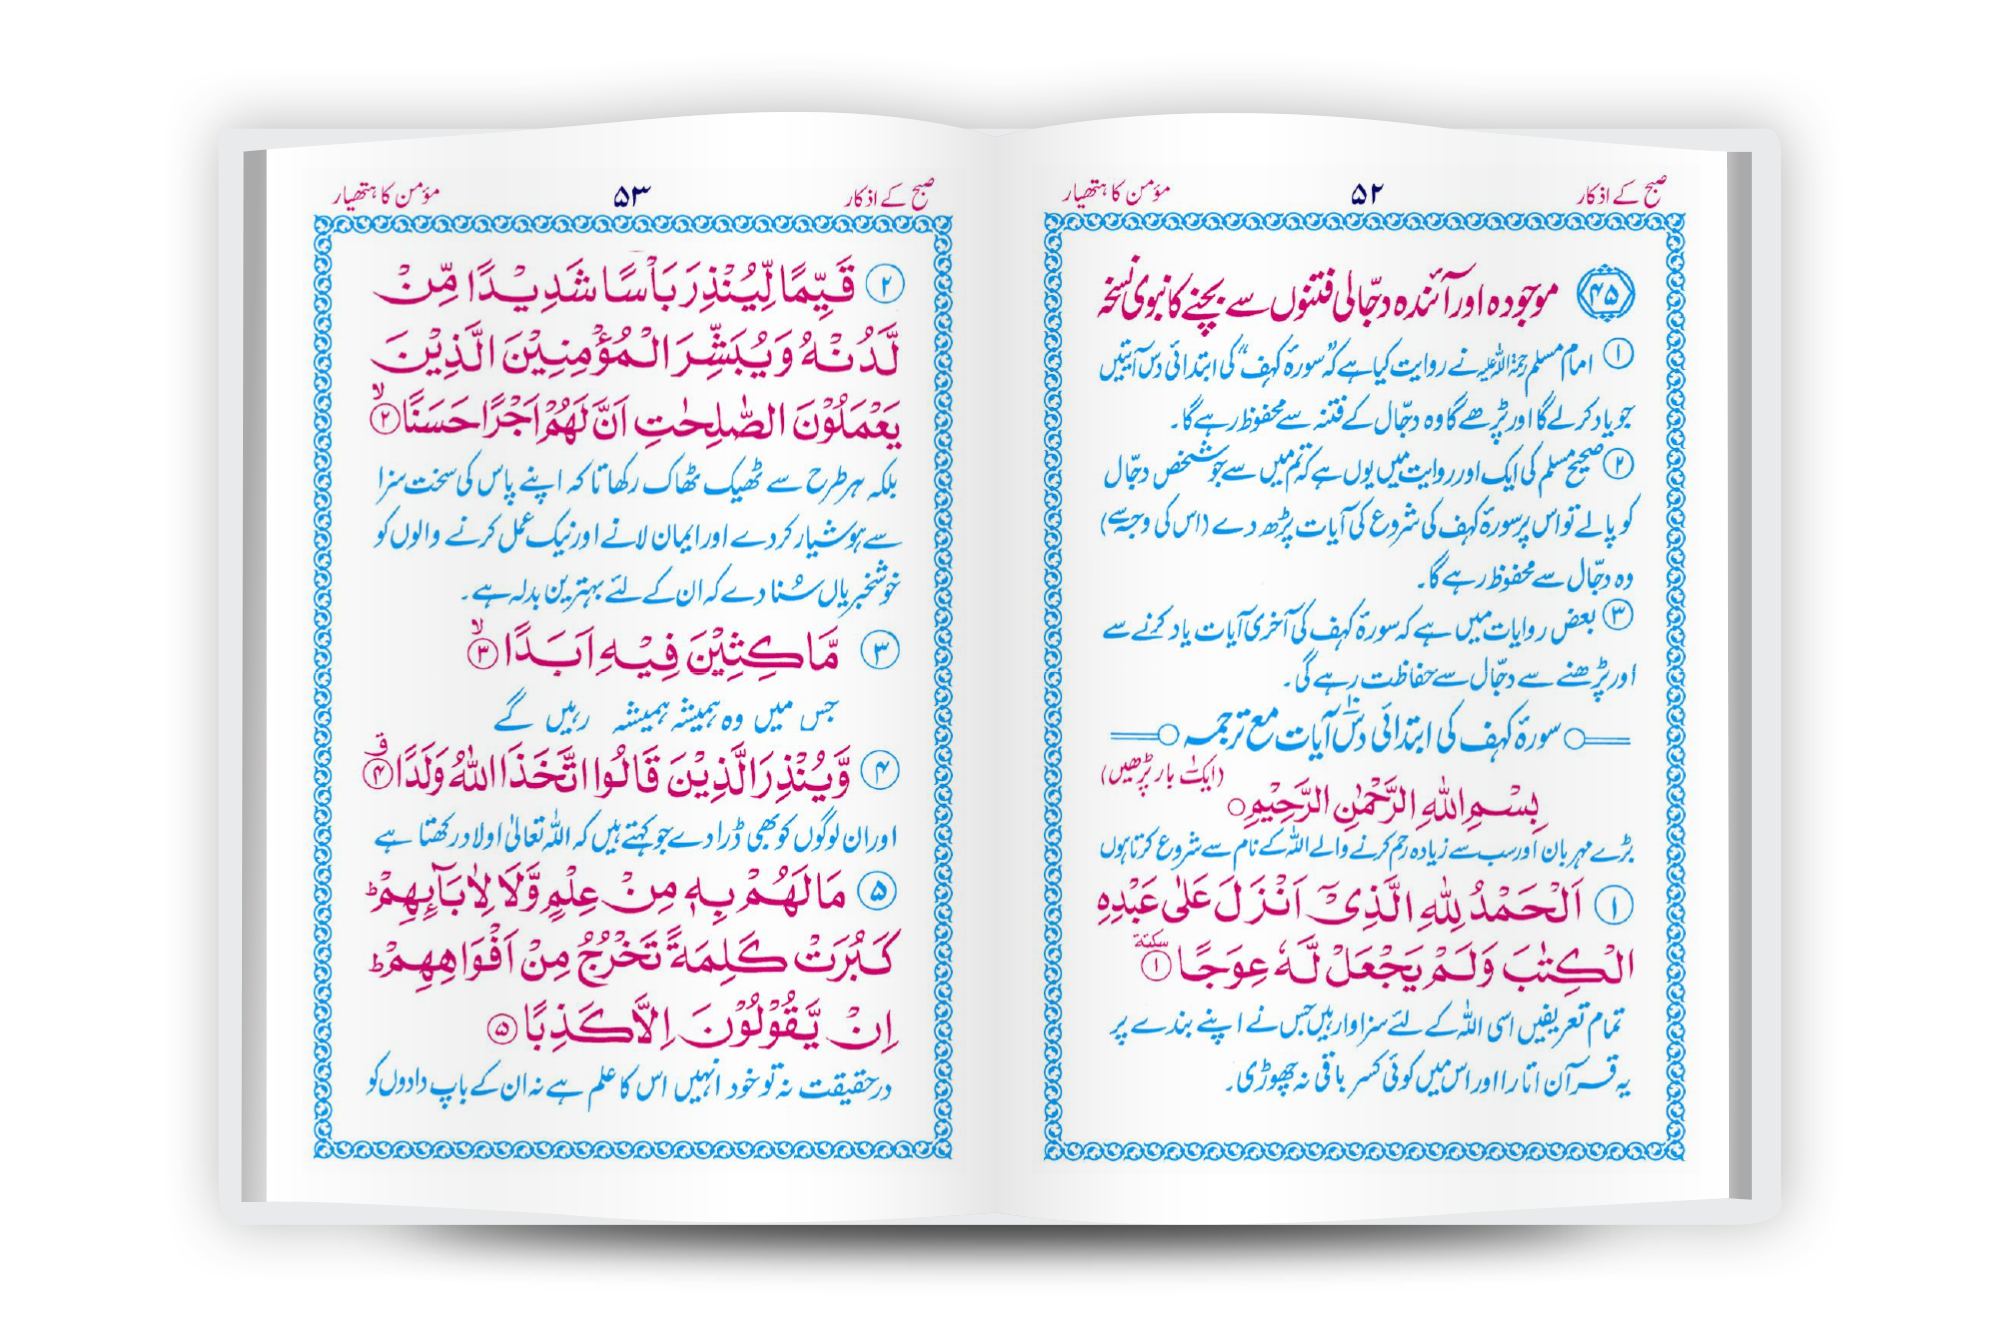 صبح کے اذکار ۵۲ مؤمن کا ہتھیار
۴۵ موجودہ اور آئندہ دجّالی فتنوں سے بچنے کا نبوی نسخہ
۱ امام مسلم رحمۃ اللہ علیہ نے روایت کیا ہے کہ ”سورۂ کہف“ کی ابتدائی دس آیتیں
جو یاد کرلے گا اور پڑھے گا وہ دجّال کے فتنہ سے محفوظ رہے گا۔
۲ صحیح مسلم کی ایک اور روایت میں یوں ہے کہ تم میں سے جو شخص دجّال
کو پالے تو اس پر سورۂ کہف کی شروع کی آیات پڑھ دے (اس کی وجہ سے)
وہ دجّال سے محفوظ رہے گا۔
۳ بعض روایات میں ہے کہ سورۂ کہف کی آخری آیات یاد کرنے سے
اور پڑھنے سے دجّال سے حفاظت رہے گی۔
سورۂ کہف کی ابتدائی دس آیات مع ترجمہ
(ایک بار پڑھیں)
بِسْمِ اللّٰهِ الرَّحْمٰنِ الرَّحِيْمِ○
بڑے مہربان اور سب سے زیادہ رحم کرنے والے اللہ کے نام سے شروع کرتا ہوں
۱ اَلْحَمْدُ لِلّٰهِ الَّذِىْٓ اَنْزَلَ عَلٰى عَبْدِهِ
الْكِتٰبَ وَلَمْ يَجْعَلْ لَّهٗ عِوَجًا سكتة ۱
تمام تعریفیں اسی اللہ کے لئے سزاوار ہیں جس نے اپنے بندے پر
یہ قرآن اتارا اور اس میں کوئی کسر باقی نہ چھوڑی۔
صبح کے اذکار ۵۳ مؤمن کا ہتھیار
۲ قَيِّمًا لِّيُنْذِرَ بَاْسًا شَدِيْدًا مِّنْ
لَّدُنْهُ وَيُبَشِّرَ الْمُؤْمِنِيْنَ الَّذِيْنَ
يَعْمَلُوْنَ الصّٰلِحٰتِ اَنَّ لَهُمْ اَجْرًا حَسَنًا ۙ۲
بلکہ ہر طرح سے ٹھیک ٹھاک رکھا تاکہ اپنے پاس کی سخت سزا
سے ہوشیار کردے اور ایمان لانے اور نیک عمل کرنے والوں کو
خوشخبریاں سُنا دے کہ ان کے لئے بہترین بدلہ ہے۔
۳ مَّاكِثِيْنَ فِيْهِ اَبَدًا ۙ۳
جس میں وہ ہمیشہ ہمیشہ رہیں گے
۴ وَّيُنْذِرَ الَّذِيْنَ قَالُوا اتَّخَذَ اللّٰهُ وَلَدًا ق۴
اور ان لوگوں کو بھی ڈرا دے جو کہتے ہیں کہ اللہ تعالیٰ اولاد رکھتا ہے
۵ مَا لَهُمْ بِهٖ مِنْ عِلْمٍ وَّلَا لِاٰبَآىِٕهِمْ ؕ
كَبُرَتْ كَلِمَةً تَخْرُجُ مِنْ اَفْوَاهِهِمْ ؕ
اِنْ يَّقُوْلُوْنَ اِلَّا كَذِبًا ۵
درحقیقت نہ تو خود انہیں اس کا علم ہے نہ ان کے باپ دادوں کو